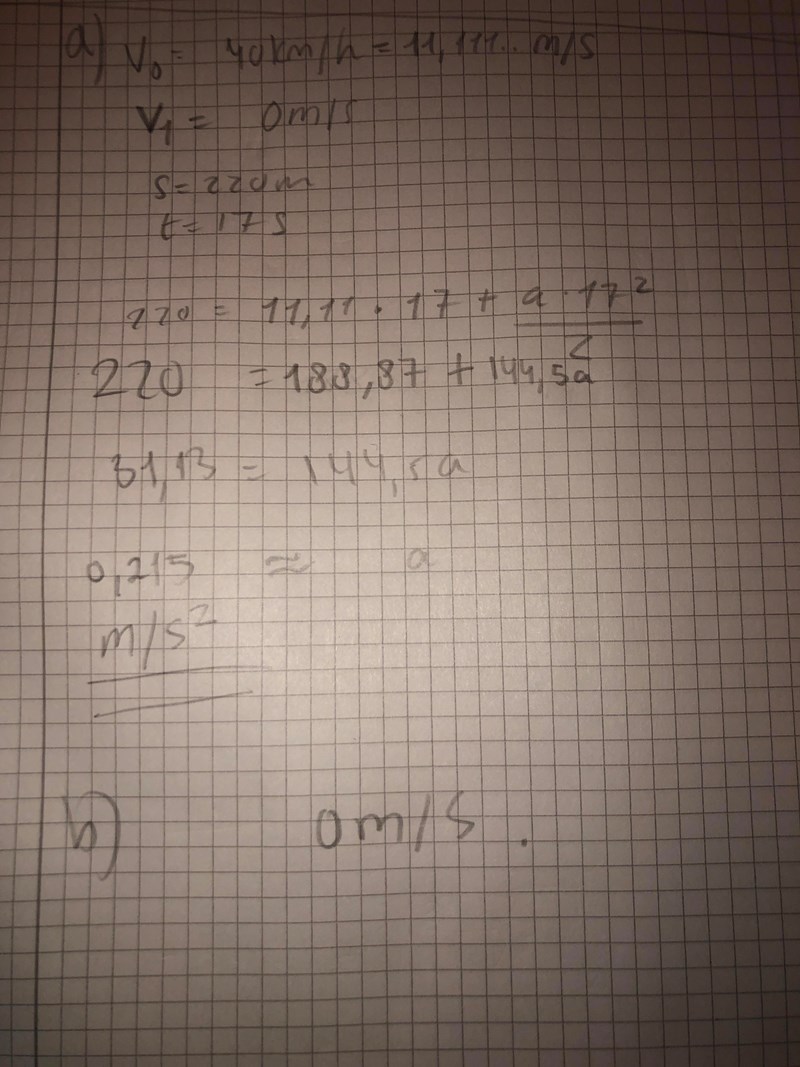 a) V₀ = 40km/h = 11,111.. m/s
V₁ = 0m/s
s = 220m
t = 17s
220 = 11,11 · 17 + a · 17² / 2
220 = 188,87 + 144,5a
31,13 = 144,5a
0,215 ≈ a
m/s²
b) 0m/s .